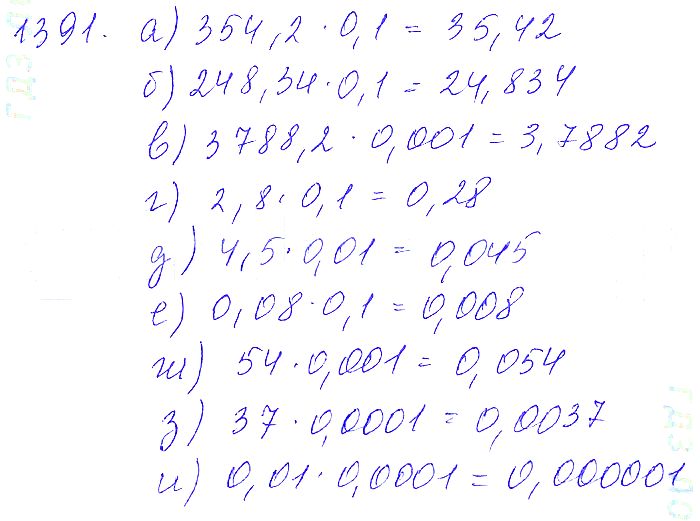 1391. а) 354,2 · 0,1 = 35,42
б) 248,34 · 0,1 = 24,834
в) 3788,2 · 0,001 = 3,7882
г) 2,8 · 0,1 = 0,28
д) 4,5 · 0,01 = 0,045
е) 0,08 · 0,1 = 0,008
ж) 54 · 0,001 = 0,054
з) 37 · 0,0001 = 0,0037
и) 0,01 · 0,0001 = 0,000001